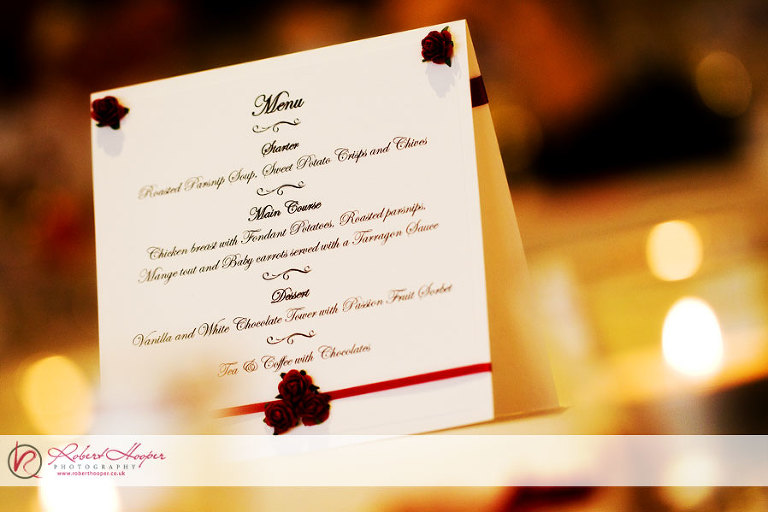 Menu
Starter
Roasted Parsnip Soup, Sweet Potato Crisps and Chives
Main Course
Chicken breast with Fondant Potatoes, Roasted parsnips,
Mange tout and Baby carrots served with a Tarragon Sauce
Dessert
Vanilla and White Chocolate Tower with Passion Fruit Sorbet
Tea & Coffee with Chocolates
Robert Hooper
PHOTOGRAPHY
www.roberthooper.co.uk